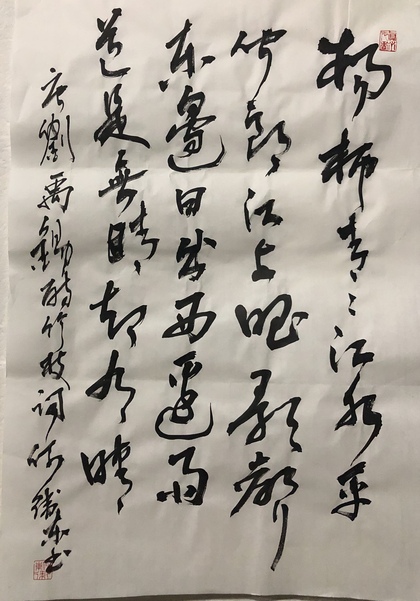 楊柳青〻江水平
聞郎江上唱歌聲
東邊日出西邊雨
道是無晴却有晴
唐劉禹錫詩竹枝詞 书